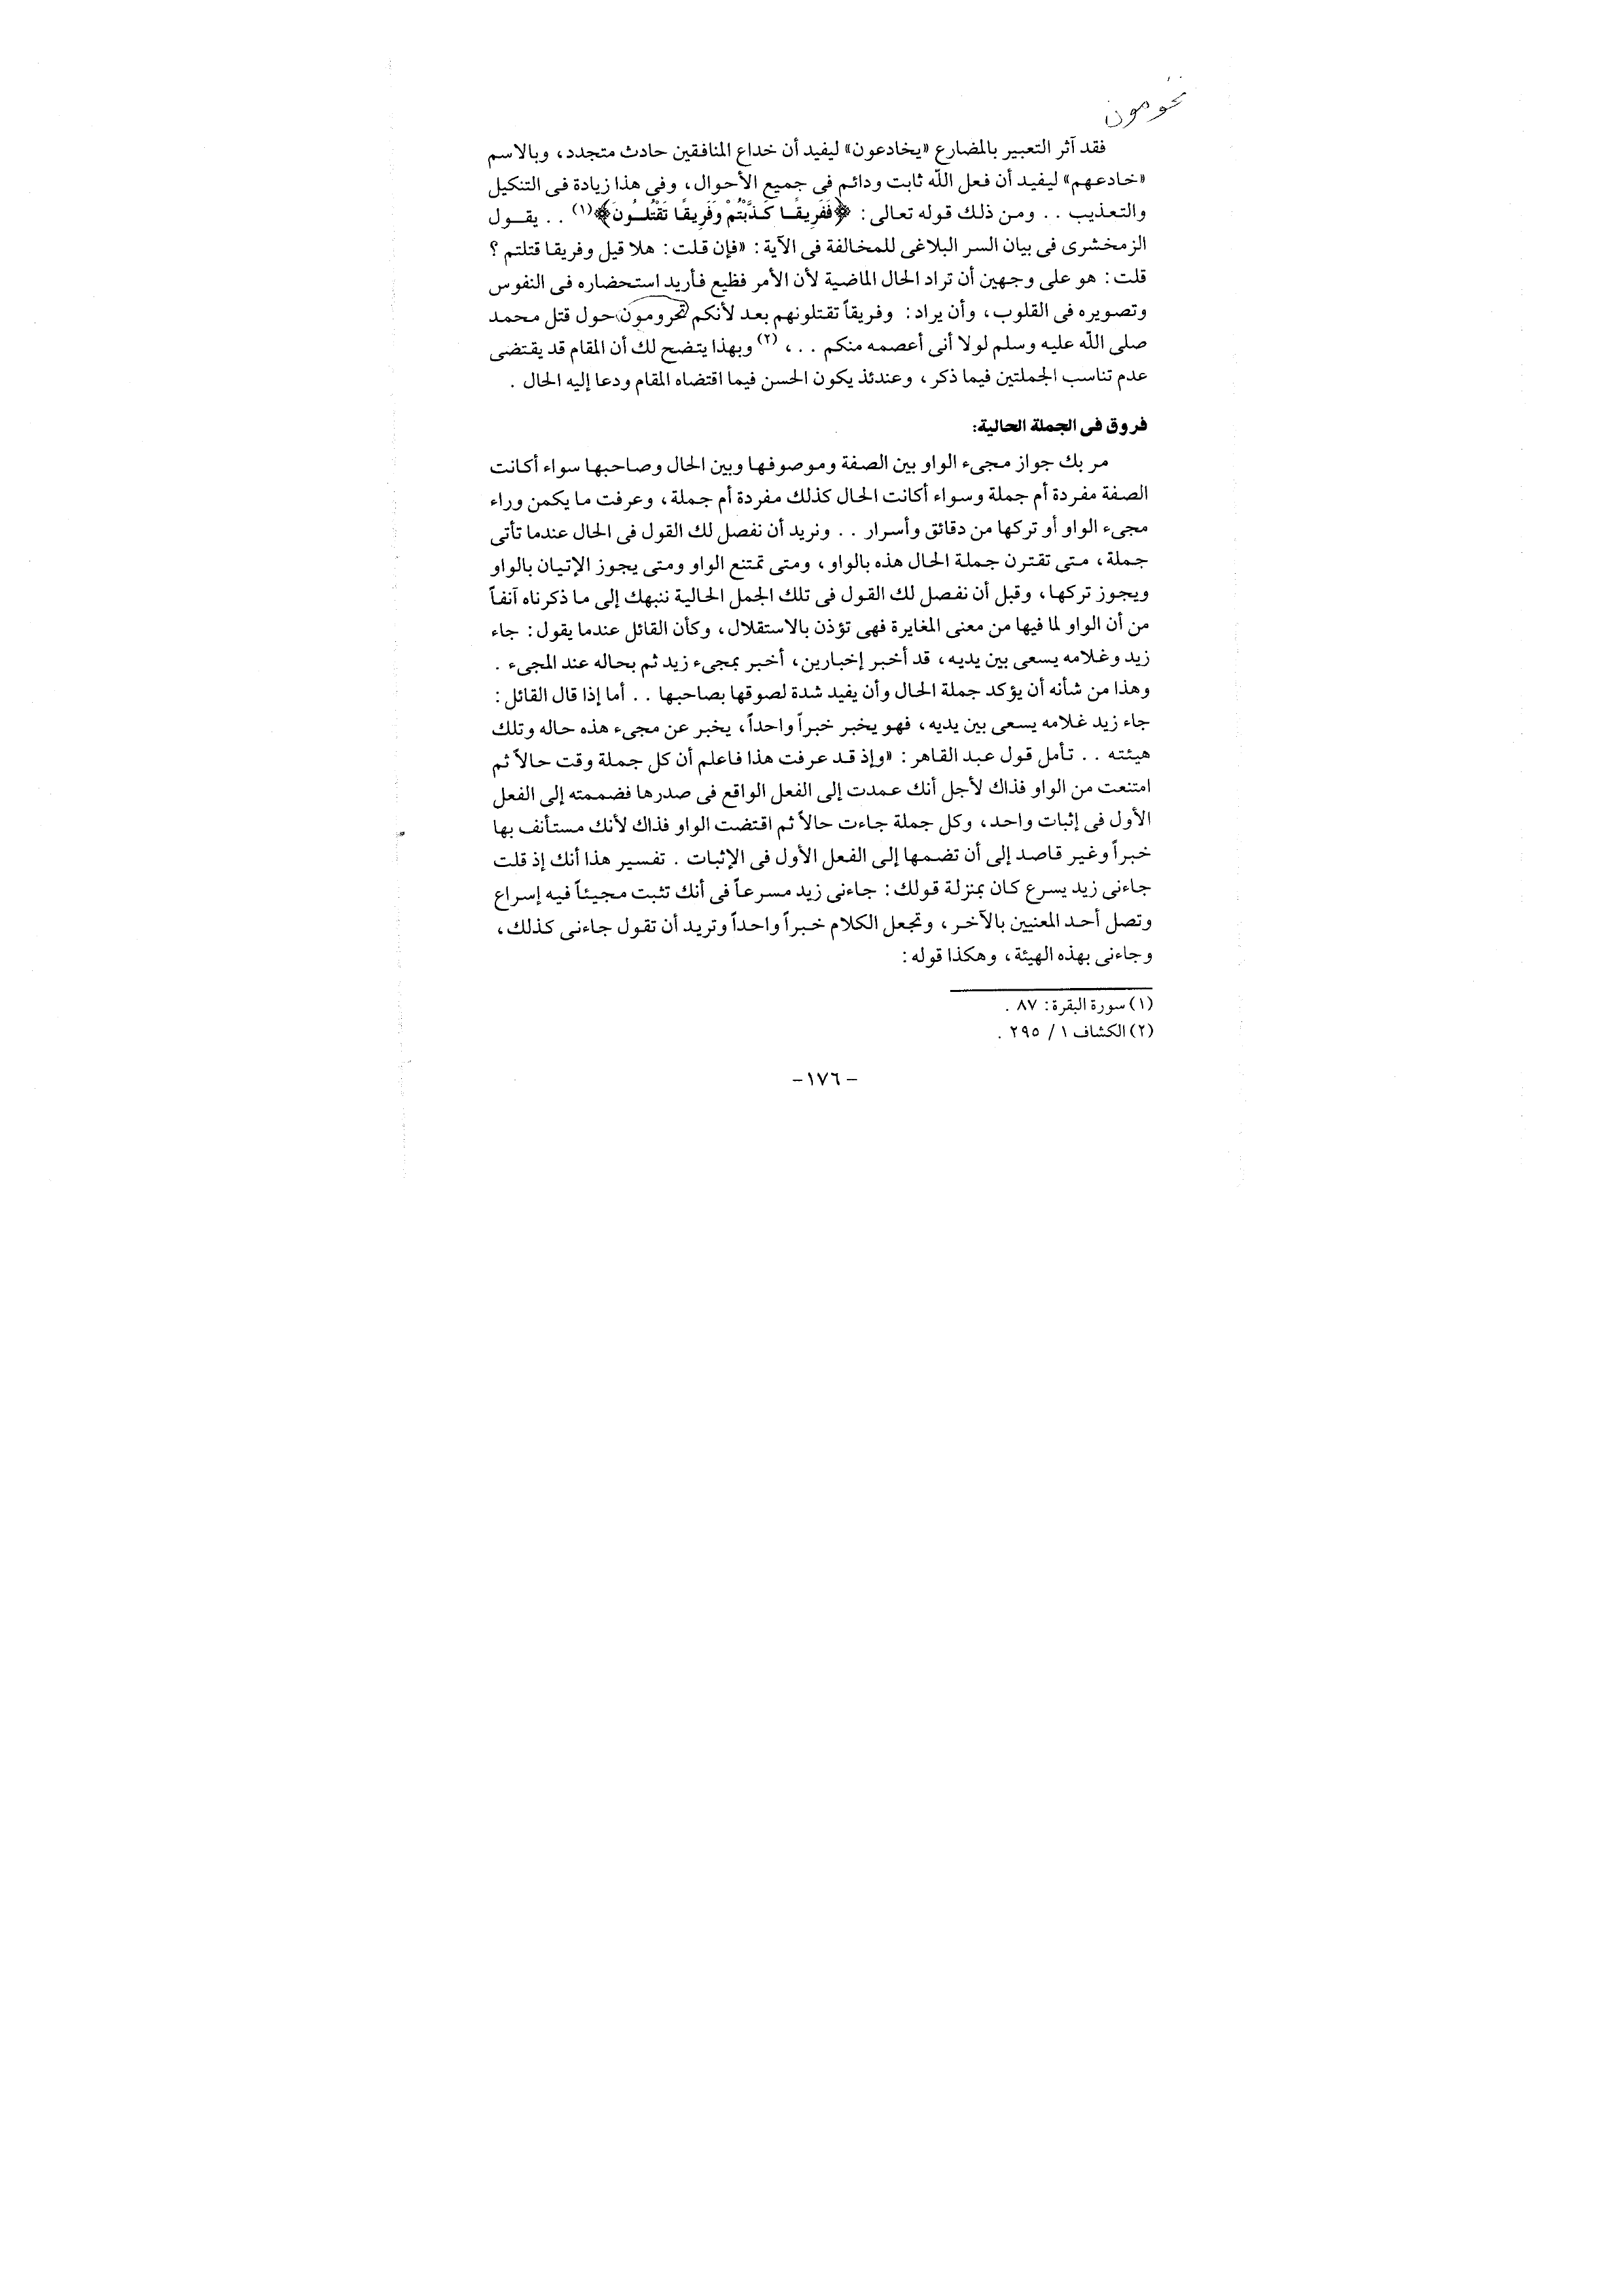 تحومون
فقد آثر التعبير بالمضارع «يخادعون» ليفيد أن خداع المنافقين حادث متجدد، وبالاسم
«خادعهم» ليفيد أن فعل اللّه ثابت ودائم فى جميع الأحوال، وفى هذا زيادة فى التنكيل
والتعذيب . . ومن ذلك قوله تعالى: ﴿فَفَرِيقًا كَذَّبْتُمْ وَفَرِيقًا تَقْتُلُونَ﴾(١) . . يقول
الزمخشرى فى بيان السر البلاغى للمخالفة فى الآية: «فإن قلت: هلا قيل وفريقا قتلتم ؟
قلت: هو على وجهين أن تراد الحال الماضية لأن الأمر فظيع فأريد استحضاره فى النفوس
وتصويره فى القلوب، وأن يراد: وفريقاً تقتلونهم بعد لأنكم تحرومون حول قتل محمد
صلى اللّه عليه وسلم لولا أنى أعصمه منكم . . ، (٢) وبهذا يتضح لك أن المقام قد يقتضى
عدم تناسب الجملتين فيما ذكر، وعندئذ يكون الحسن فيما اقتضاه المقام ودعا إليه الحال .
فروق فى الجملة الحالية:
مر بك جواز مجىء الواو بين الصفة وموصوفها وبين الحال وصاحبها سواء أكانت
الصفة مفردة أم جملة وسواء أكانت الحال كذلك مفردة أم جملة، وعرفت ما يكمن وراء
مجىء الواو أو تركها من دقائق وأسرار . . ونريد أن نفصل لك القول فى الحال عندما تأتى
جملة، متى تقترن جملة الحال هذه بالواو، ومتى تمتنع الواو ومتى يجوز الإتيان بالواو
ويجوز تركها، وقبل أن نفصل لك القول فى تلك الجمل الحالية ننبهك إلى ما ذكرناه آنفاً
من أن الواو لما فيها من معنى المغايرة فهى تؤذن بالاستقلال، وكأن القائل عندما يقول: جاء
زيد وغلامه يسعى بين يديه، قد أخبر إخبارين، أخبر بمجىء زيد ثم بحاله عند المجىء .
وهذا من شأنه أن يؤكد جملة الحال وأن يفيد شدة لصوقها بصاحبها . . أما إذا قال القائل:
جاء زيد غلامه يسعى بين يديه، فهو يخبر خبراً واحداً، يخبر عن مجىء هذه حاله وتلك
هيئته . . تأمل قول عبد القاهر: «وإذ قد عرفت هذا فاعلم أن كل جملة وقت حالاً ثم
امتنعت من الواو فذاك لأجل أنك عمدت إلى الفعل الواقع فى صدرها فضممته إلى الفعل
الأول فى إثبات واحد، وكل جملة جاءت حالاً ثم اقتضت الواو فذاك لأنك مستأنف بها
خبراً وغير قاصد إلى أن تضمها إلى الفعل الأول فى الإثبات . تفسير هذا أنك إذ قلت
جاءنى زيد يسرع كان بمنزلة قولك: جاءنى زيد مسرعاً فى أنك تثبت مجيئاً فيه إسراع
وتصل أحد المعنيين بالآخر، وتجعل الكلام خبراً واحداً وتريد أن تقول جاءنى كذلك،
وجاءنى بهذه الهيئة، وهكذا قوله:
(١) سورة البقرة: ٨٧ .
(٢) الكشاف ١ / ٢٩٥ .
- ١٧٦ -